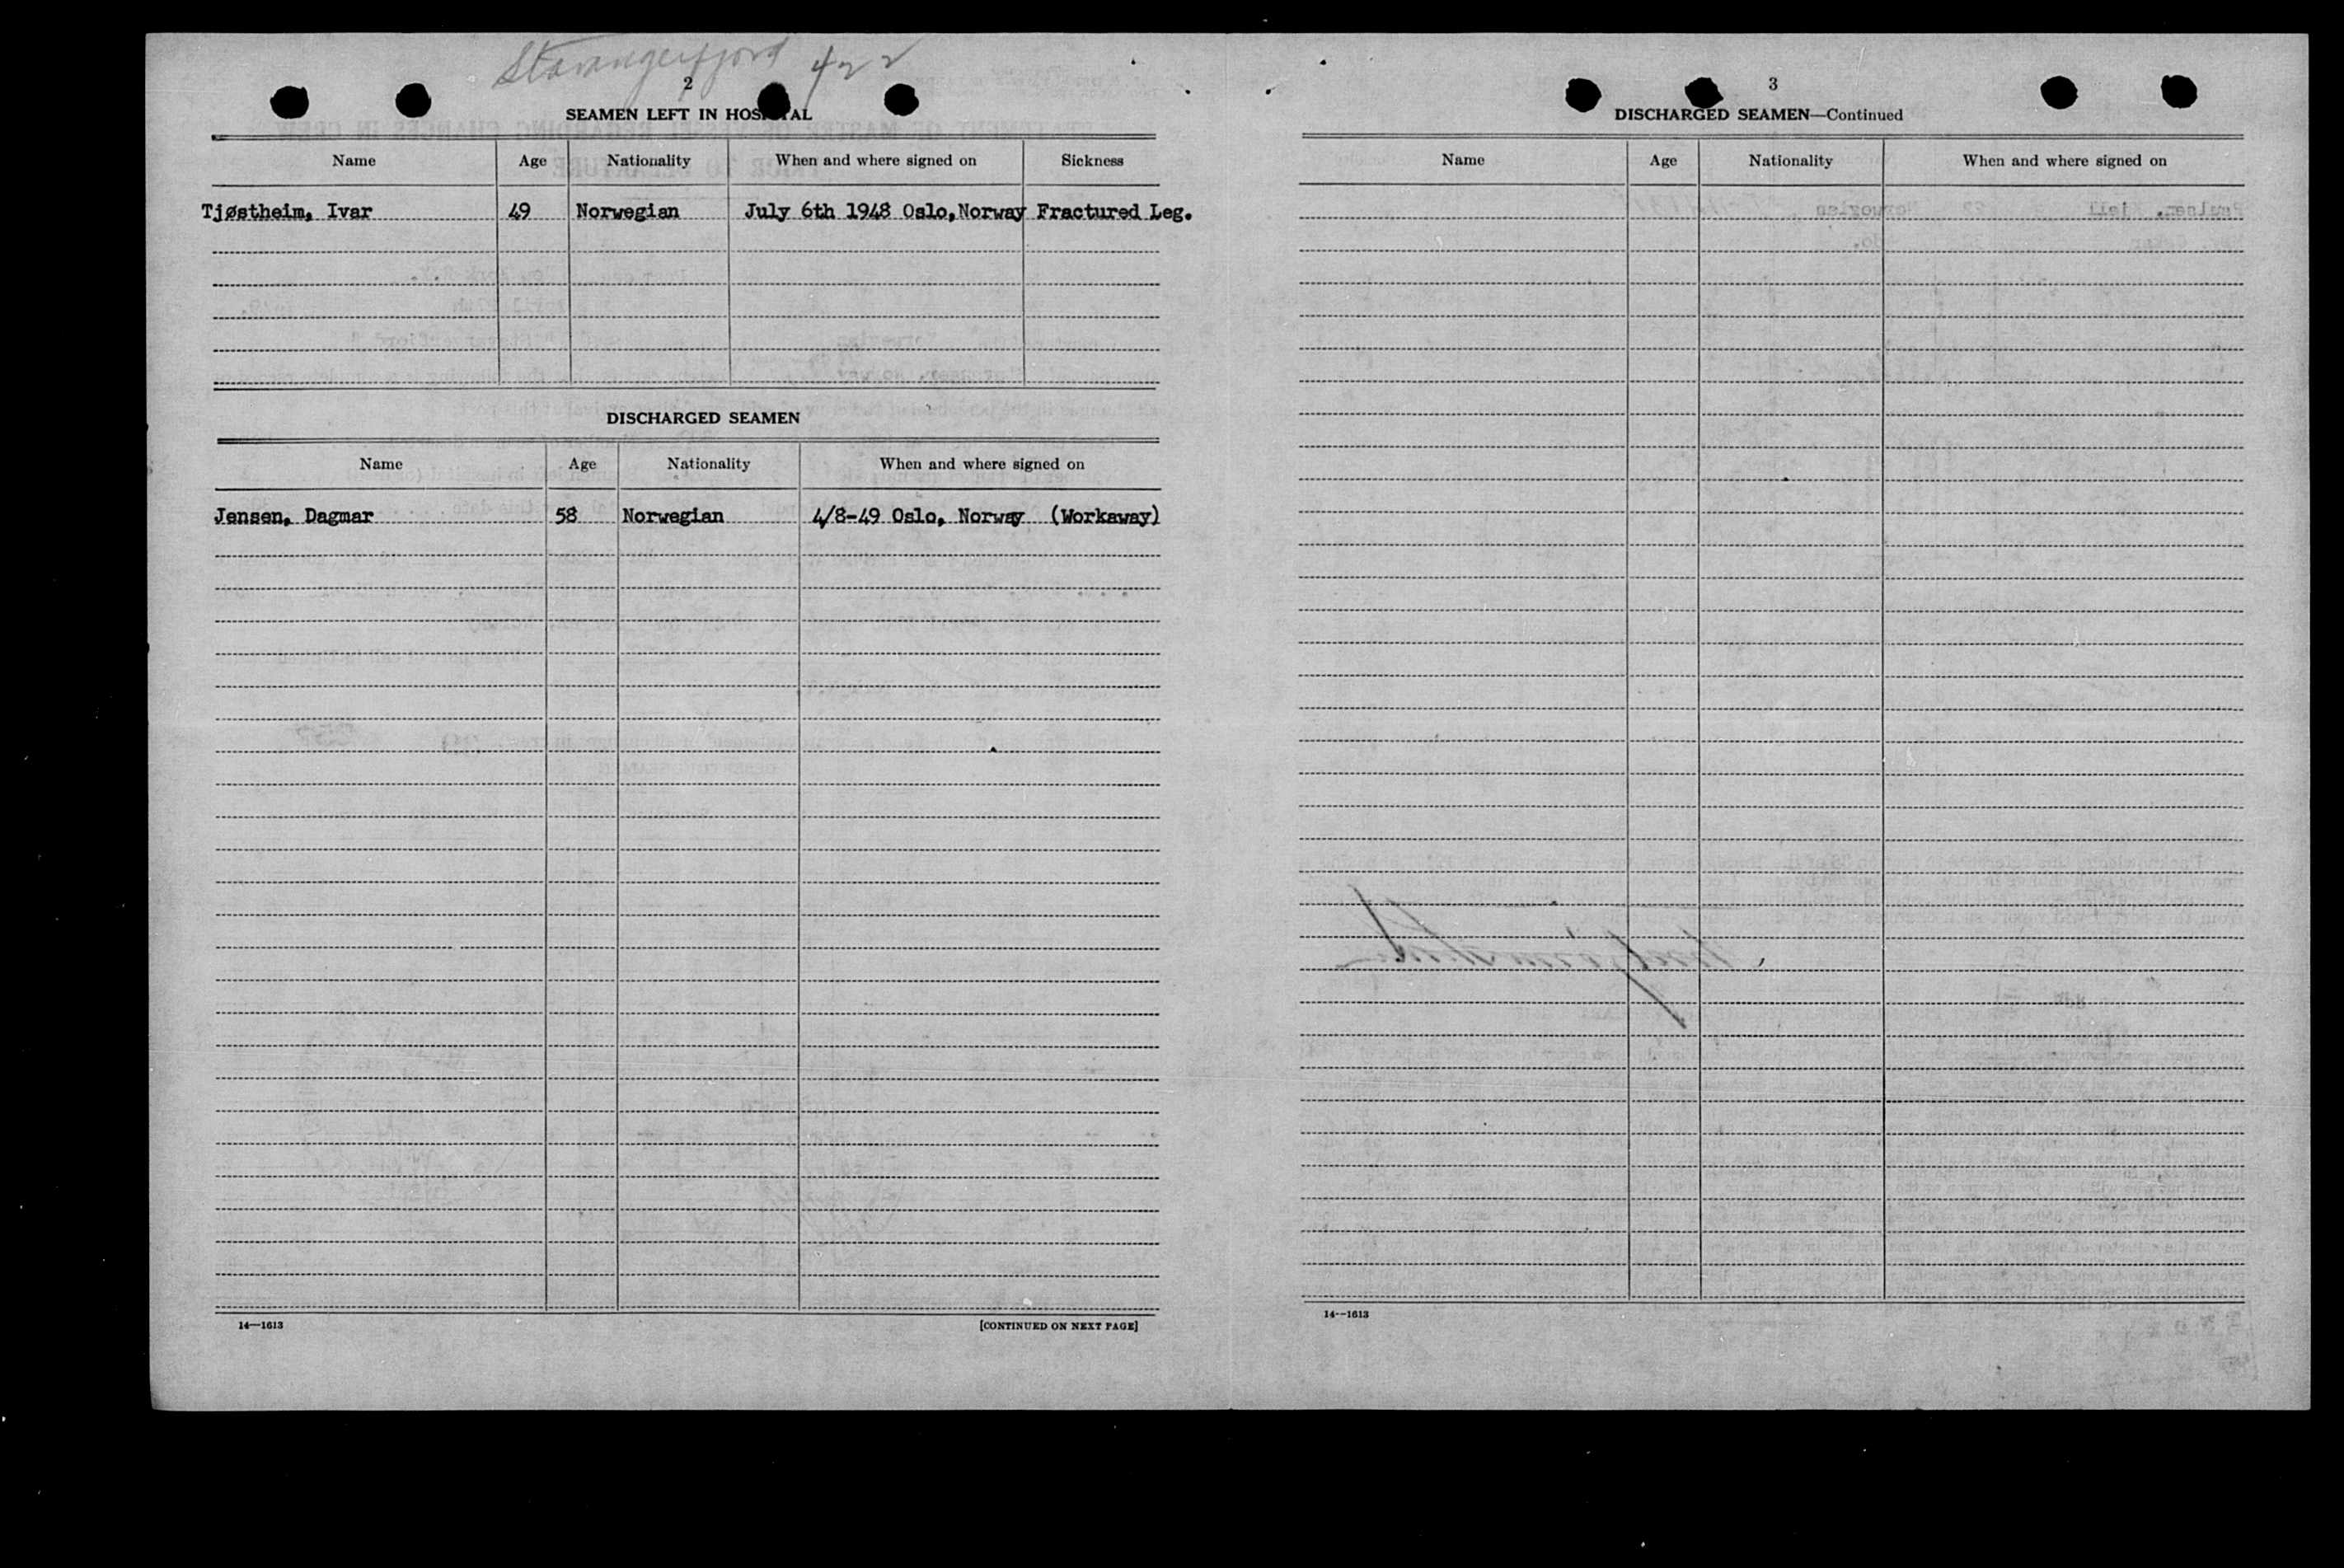 Stavangerfjord 422
2
SEAMEN LEFT IN HOSPITAL
Name Age Nationality When and where signed on Sickness
Tjøstheim, Ivar 49 Norwegian July 6th 1948 Oslo, Norway Fractured Leg.
DISCHARGED SEAMEN
Name Age Nationality When and where signed on
Jensen, Dagmar 58 Norwegian 4/8-49 Oslo, Norway (Workaway)
14—1613 [CONTINUED ON NEXT PAGE]
3
DISCHARGED SEAMEN—Continued
Name Age Nationality When and where signed on
14—1613